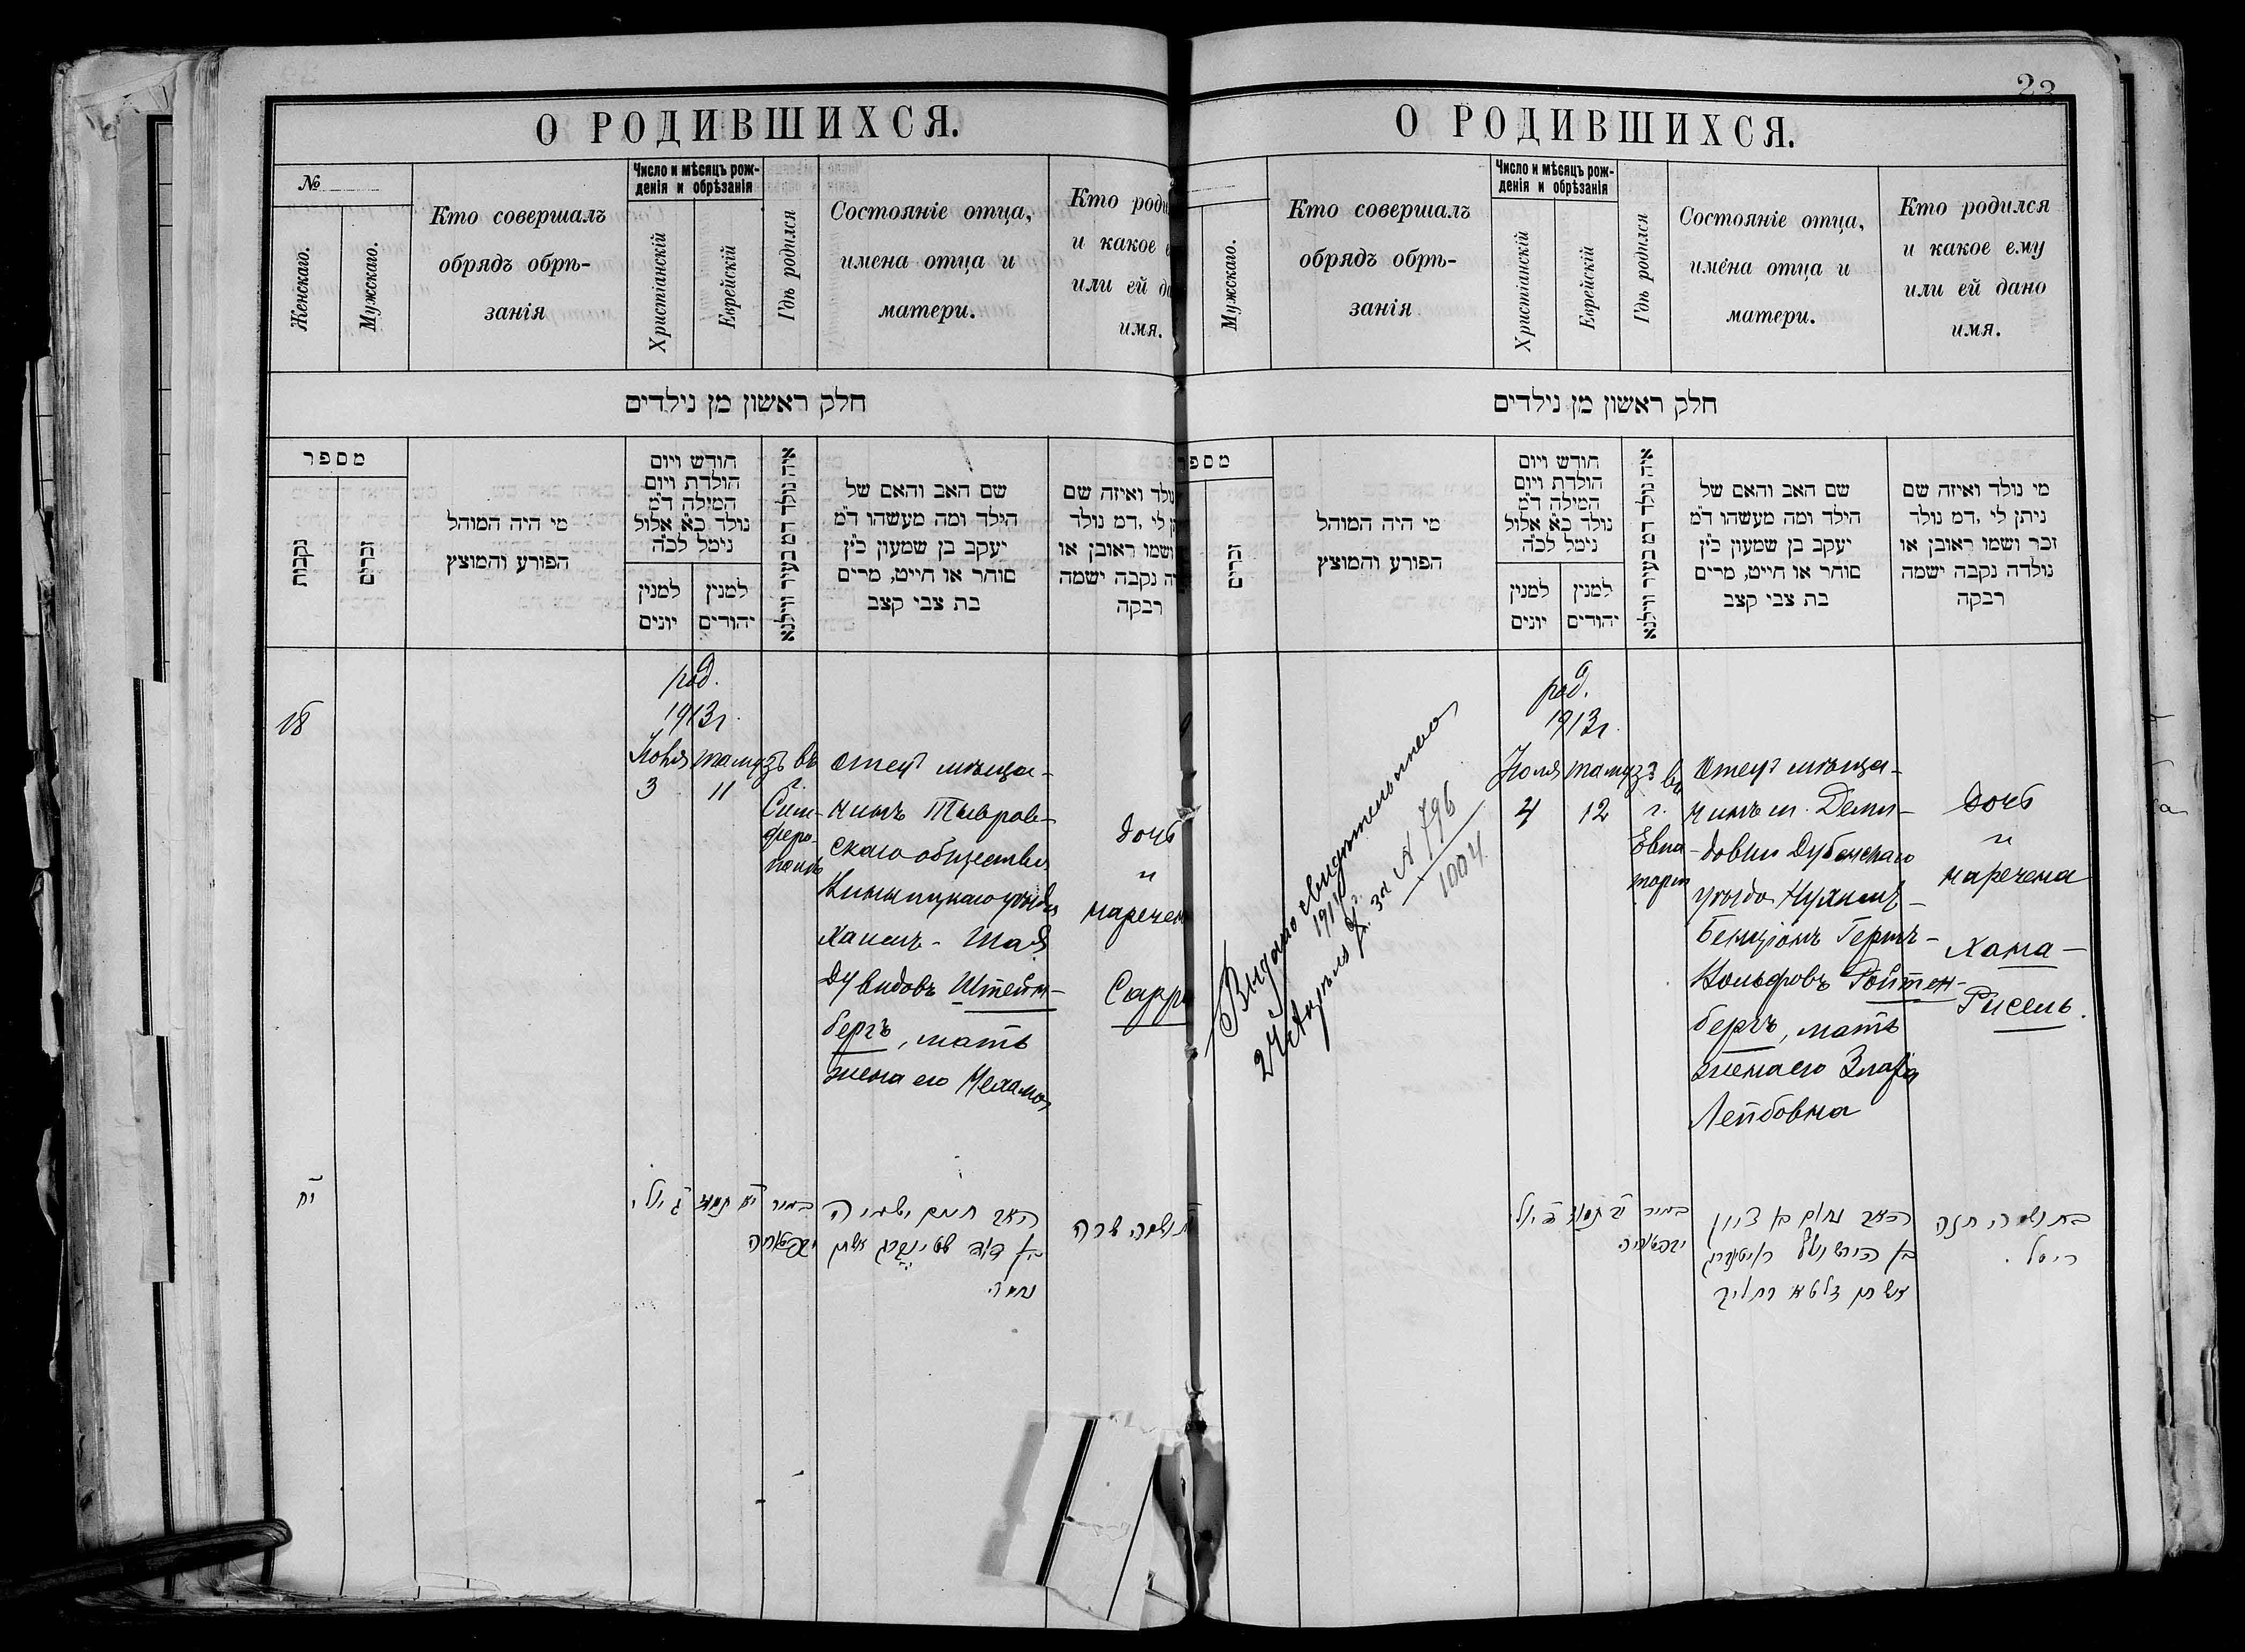 О РОДИВШИХСЯ.
№
Женскаго.
Мужскаго.
Кто совершалъ
обрядъ обрѣ-
занія
Число и мѣсяцъ рож-
денія и обрѣзанія
Христіанскій
Еврейскій
Гдѣ родился
Состояніе отца,
имена отца и
матери.
Кто роди
и какое е
или ей да
имя.
חלק ראשון מן נילדים
מספר
נקבות
זכרים
מי היה המוהל
הפורע והמוצץ
חודש ויום
הולדת ויום
המילה ד"מ
נולד כ"א אלול
נימל לכ"ה
למנין
יונים
למנין
יהודים
איה נולד דמ בעיר ווילנא
שם האב והאם של
הילד ומה מעשהו ד"מ
יעקב בן שמעון כ"ץ
סוחר או חייט, מרים
בת צבי קצב
נולד ואיזה שם
ן לי, דמ נולד
ושמו ראובן או
ה נקבה ישמה
רבקה
18
род.
1913 г.
Іюля
3
тамузъ
11
въ
г.
Сим-
феро-
полѣ
Отецъ мѣща-
нинъ Тывров-
скаго общества
Ханмъ-Шая
Дувидовъ Штейн-
бергъ, мать
жена его Нехама
дочь
и
наречен
Сарра
י"ח
ג' יולי
י"א תמוז
האב חיים ישעיה
נחמה
שרה
23
О РОДИВШИХСЯ.
Мужскаго.
Кто совершалъ
обрядъ обрѣ-
занія
Число и мѣсяцъ рож-
денія и обрѣзанія
Христіанскій
Еврейскій
Гдѣ родился
Состояніе отца,
имена отца и
матери.
Кто родился
и какое ему
или ей дано
имя.
חלק ראשון מן נילדים
מספר
זכרים
מי היה המוהל
הפורע והמוצץ
חודש ויום
הולדת ויום
המילה ד"מ
נולד כ"א אלול
נימל לכ"ה
למנין
יונים
למנין
יהודים
איה נולד דמ בעיר ווילנא
שם האב והאם של
הילד ומה מעשהו ד"מ
יעקב בן שמעון כ"ץ
סוחר או חייט, מרים
בת צבי קצב
מי נולד ואיזה שם
ניתן לי, דמ נולד
זכר ושמו ראובן או
נולדה נקבה ישמה
רבקה
Выдано свидѣтельство
24 Апрѣля 1914 г. за № 796
1004
род.
1913 г.
Іюля
4
тамузъ
12
въ
г.
Евпа-
торіи
Отецъ мѣща-
нинъ м. Деми-
довки Дубенскаго
уѣзда Нухимъ-
Бенціонъ Гершъ-
Вольфовъ Ройтен-
бергъ, мать
жена его Злата
Лейбовна
дочь
и
наречена
Хана-
Рисель.
האב נחום בן ציון
בן הירש וולף
חנה
ריסל.